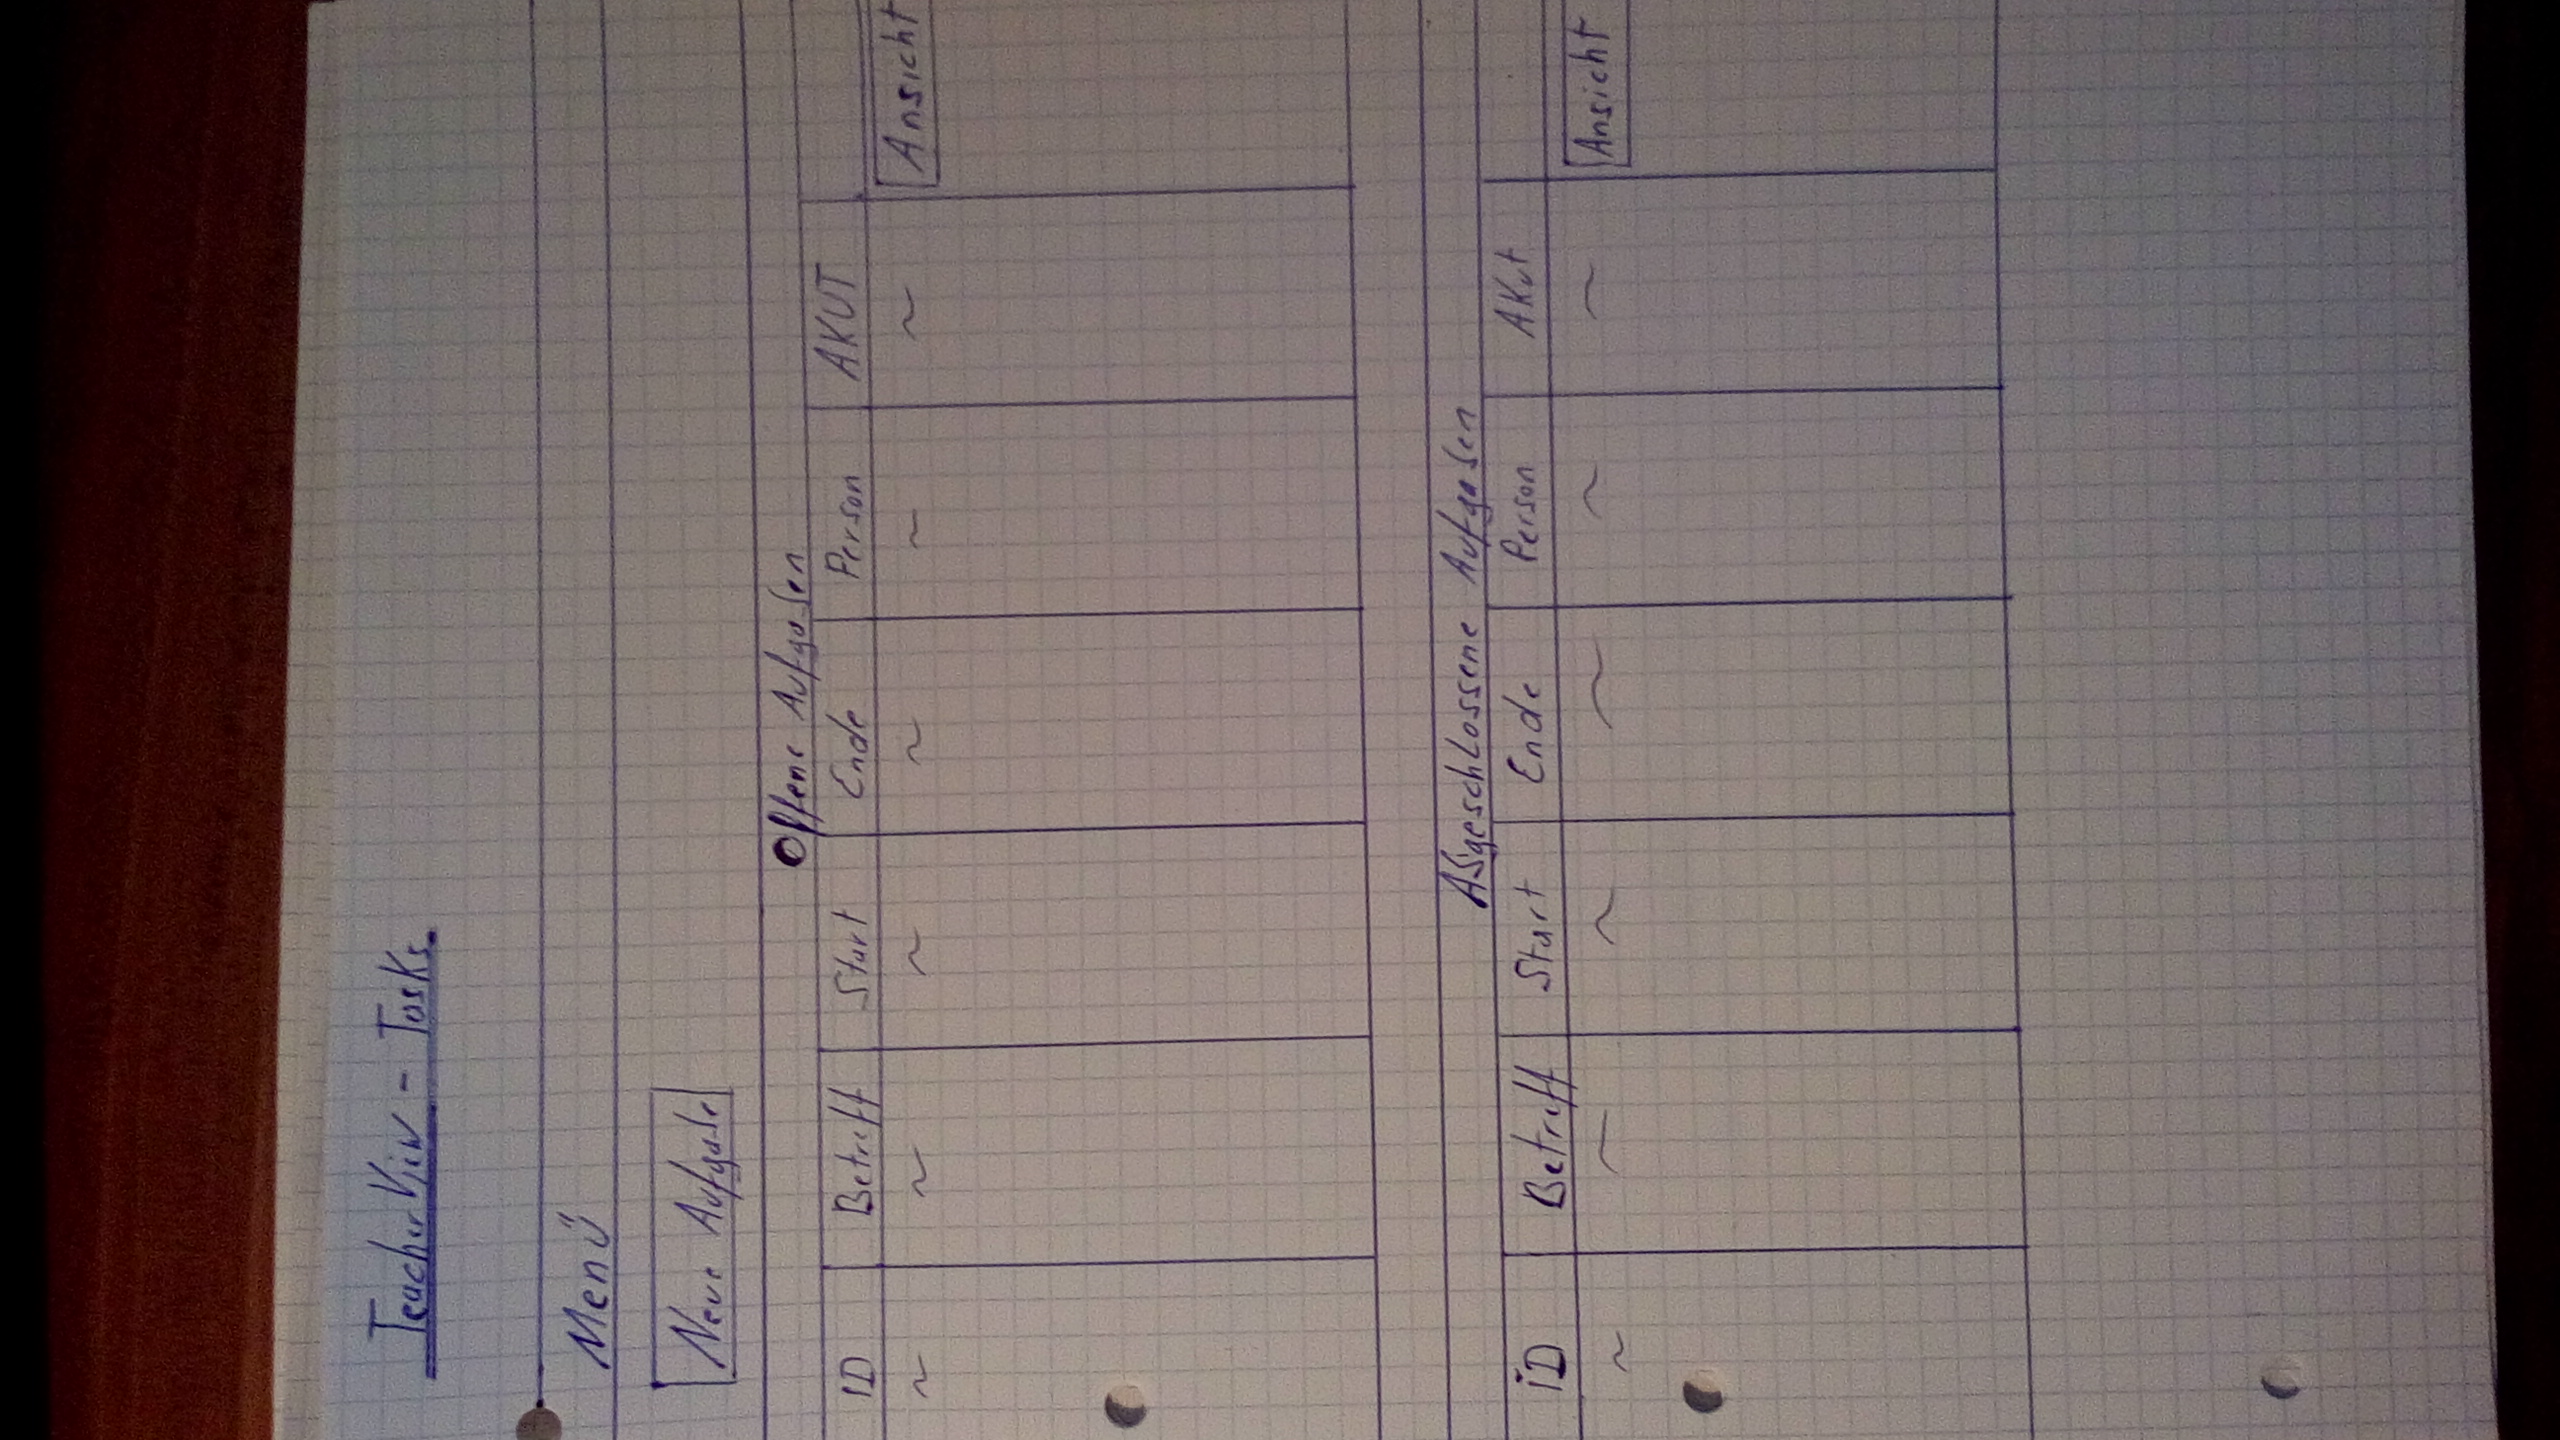 TeacherView - Tasks
Menü
Neue Aufgabe
Offene Aufgaben
ID Betreff Start Ende Person AKUT
~ ~ ~ ~ ~ ~ Ansicht
Abgeschlossene Aufgaben
ID Betreff Start Ende Person Akut
~ ~ ~ ~ ~ ~ Ansicht